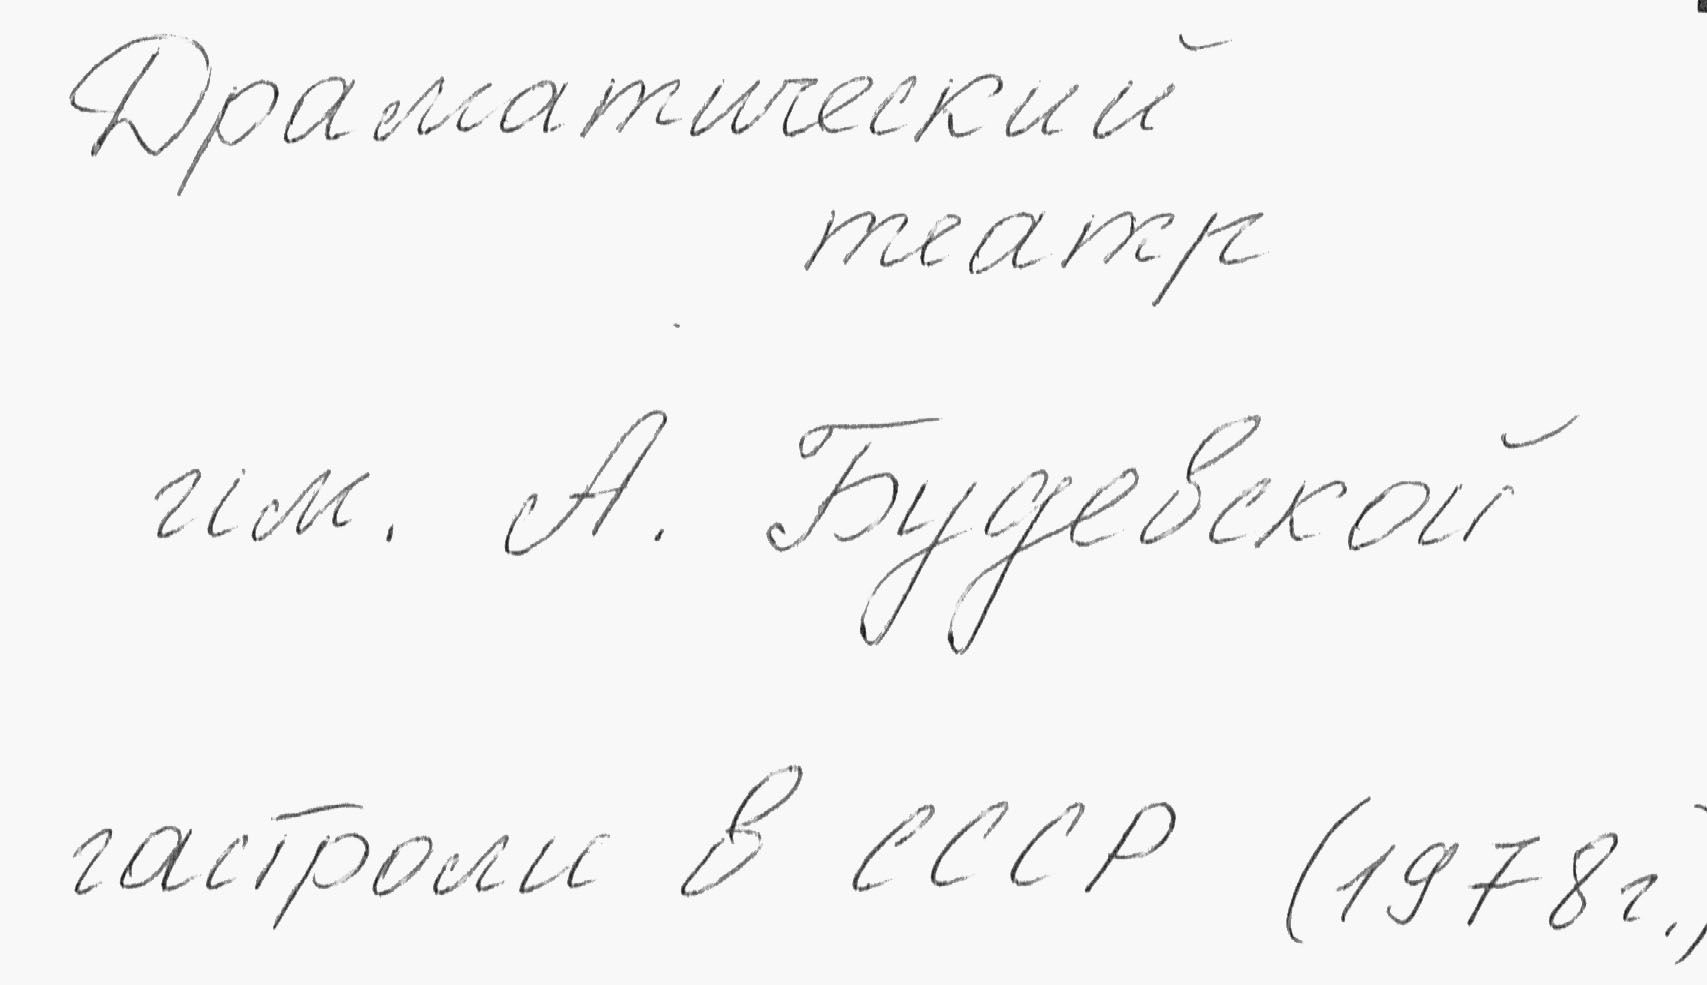 Драматический
театр
им. А. Будевской
гастроли в СССР (1978г.)